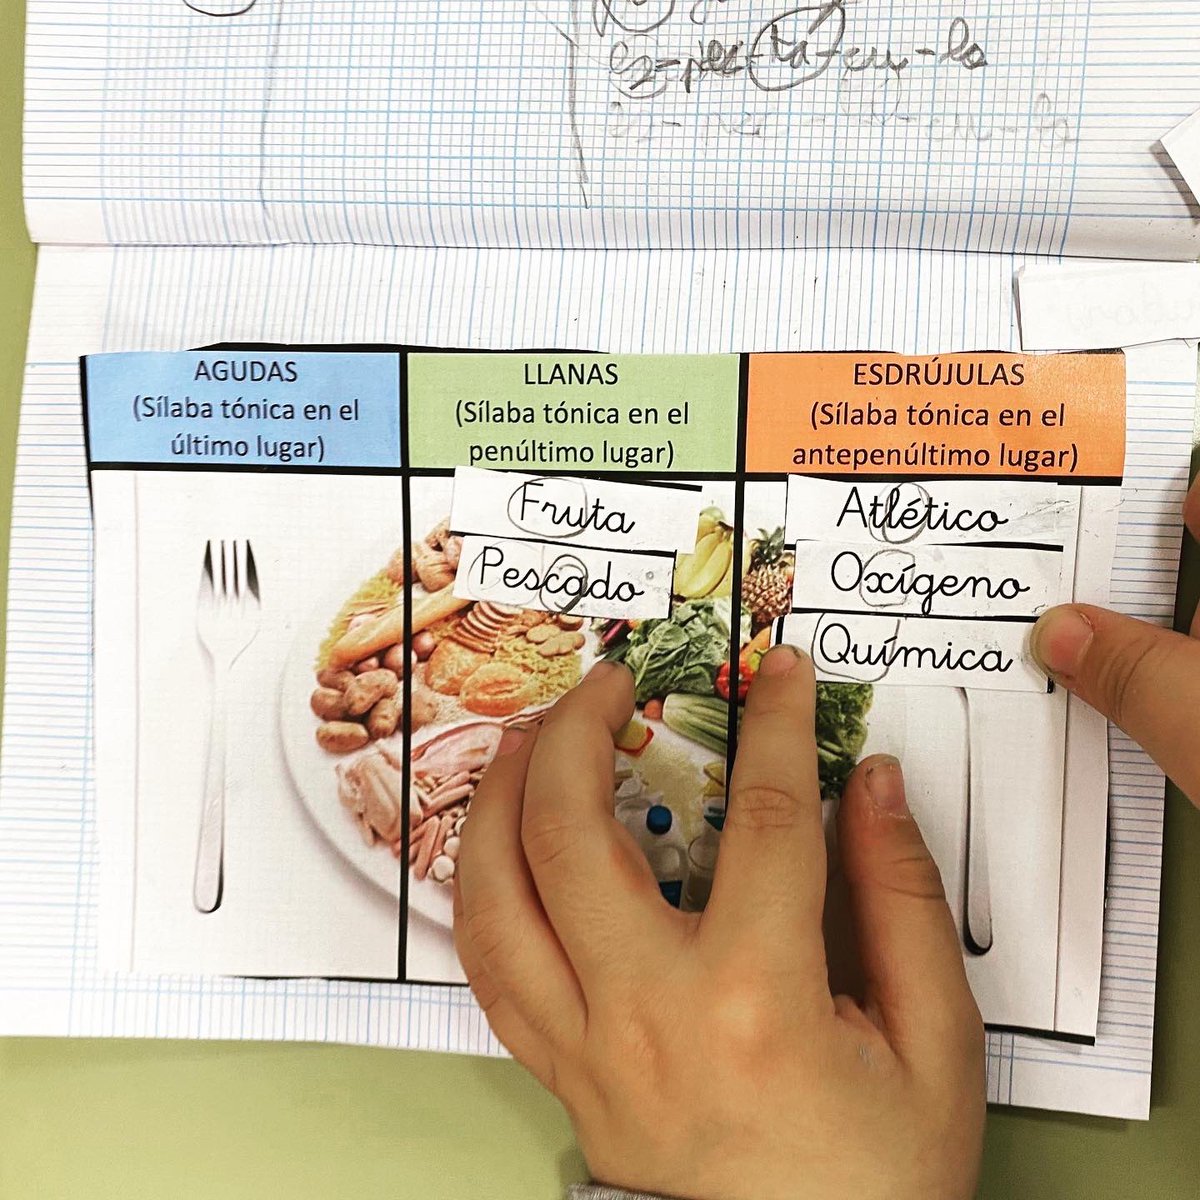 AGUDAS
(Sílaba tónica en el
último lugar)
LLANAS
(Sílaba tónica en el
penúltimo lugar)
ESDRÚJULAS
(Sílaba tónica en el
antepenúltimo lugar)
Fruta
Pescado
Atlético
Oxígeno
Química